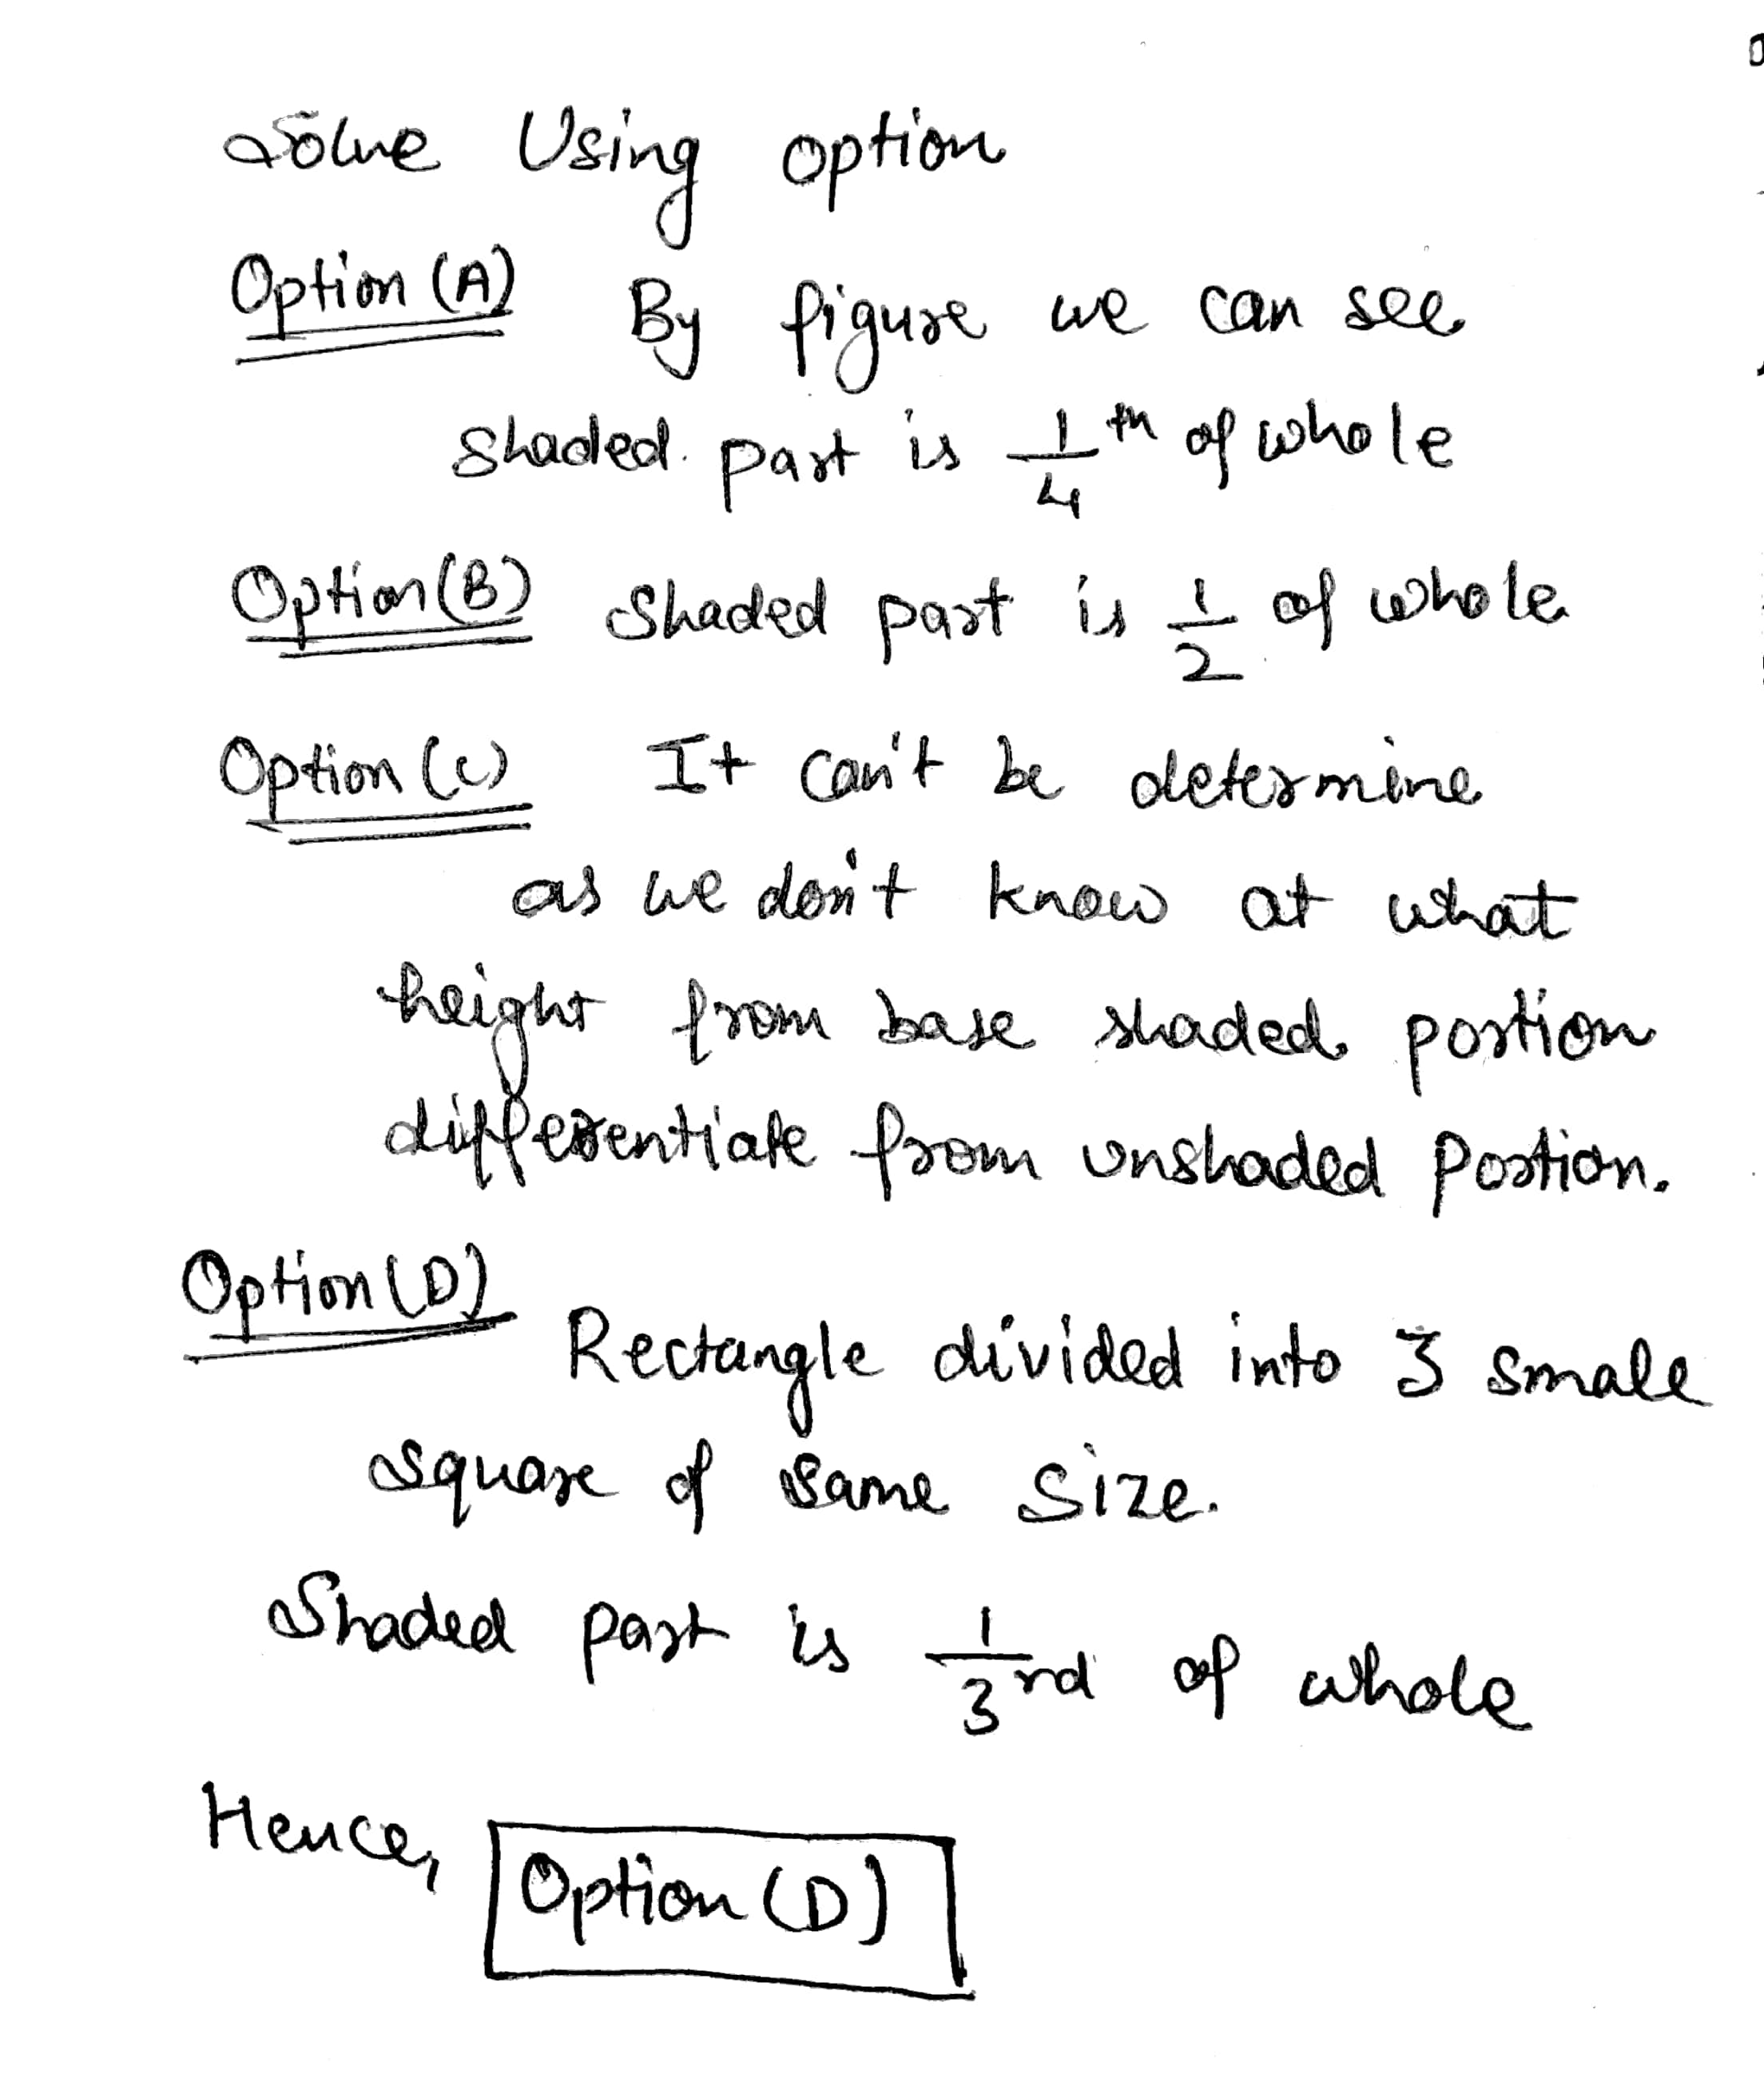 Solve Using option
Option (A) By figure we can see
shaded part is 1/4 th of whole
Option (B) Shaded part is 1/2 of whole
Option (c) It can't be determine
as we don't know at what
height from base shaded portion
differentiate from unshaded portion.
Option (D)
Rectangle divided into 3 small
square of same size.
Shaded part is 1/3 rd of whole
Hence, Option (D)